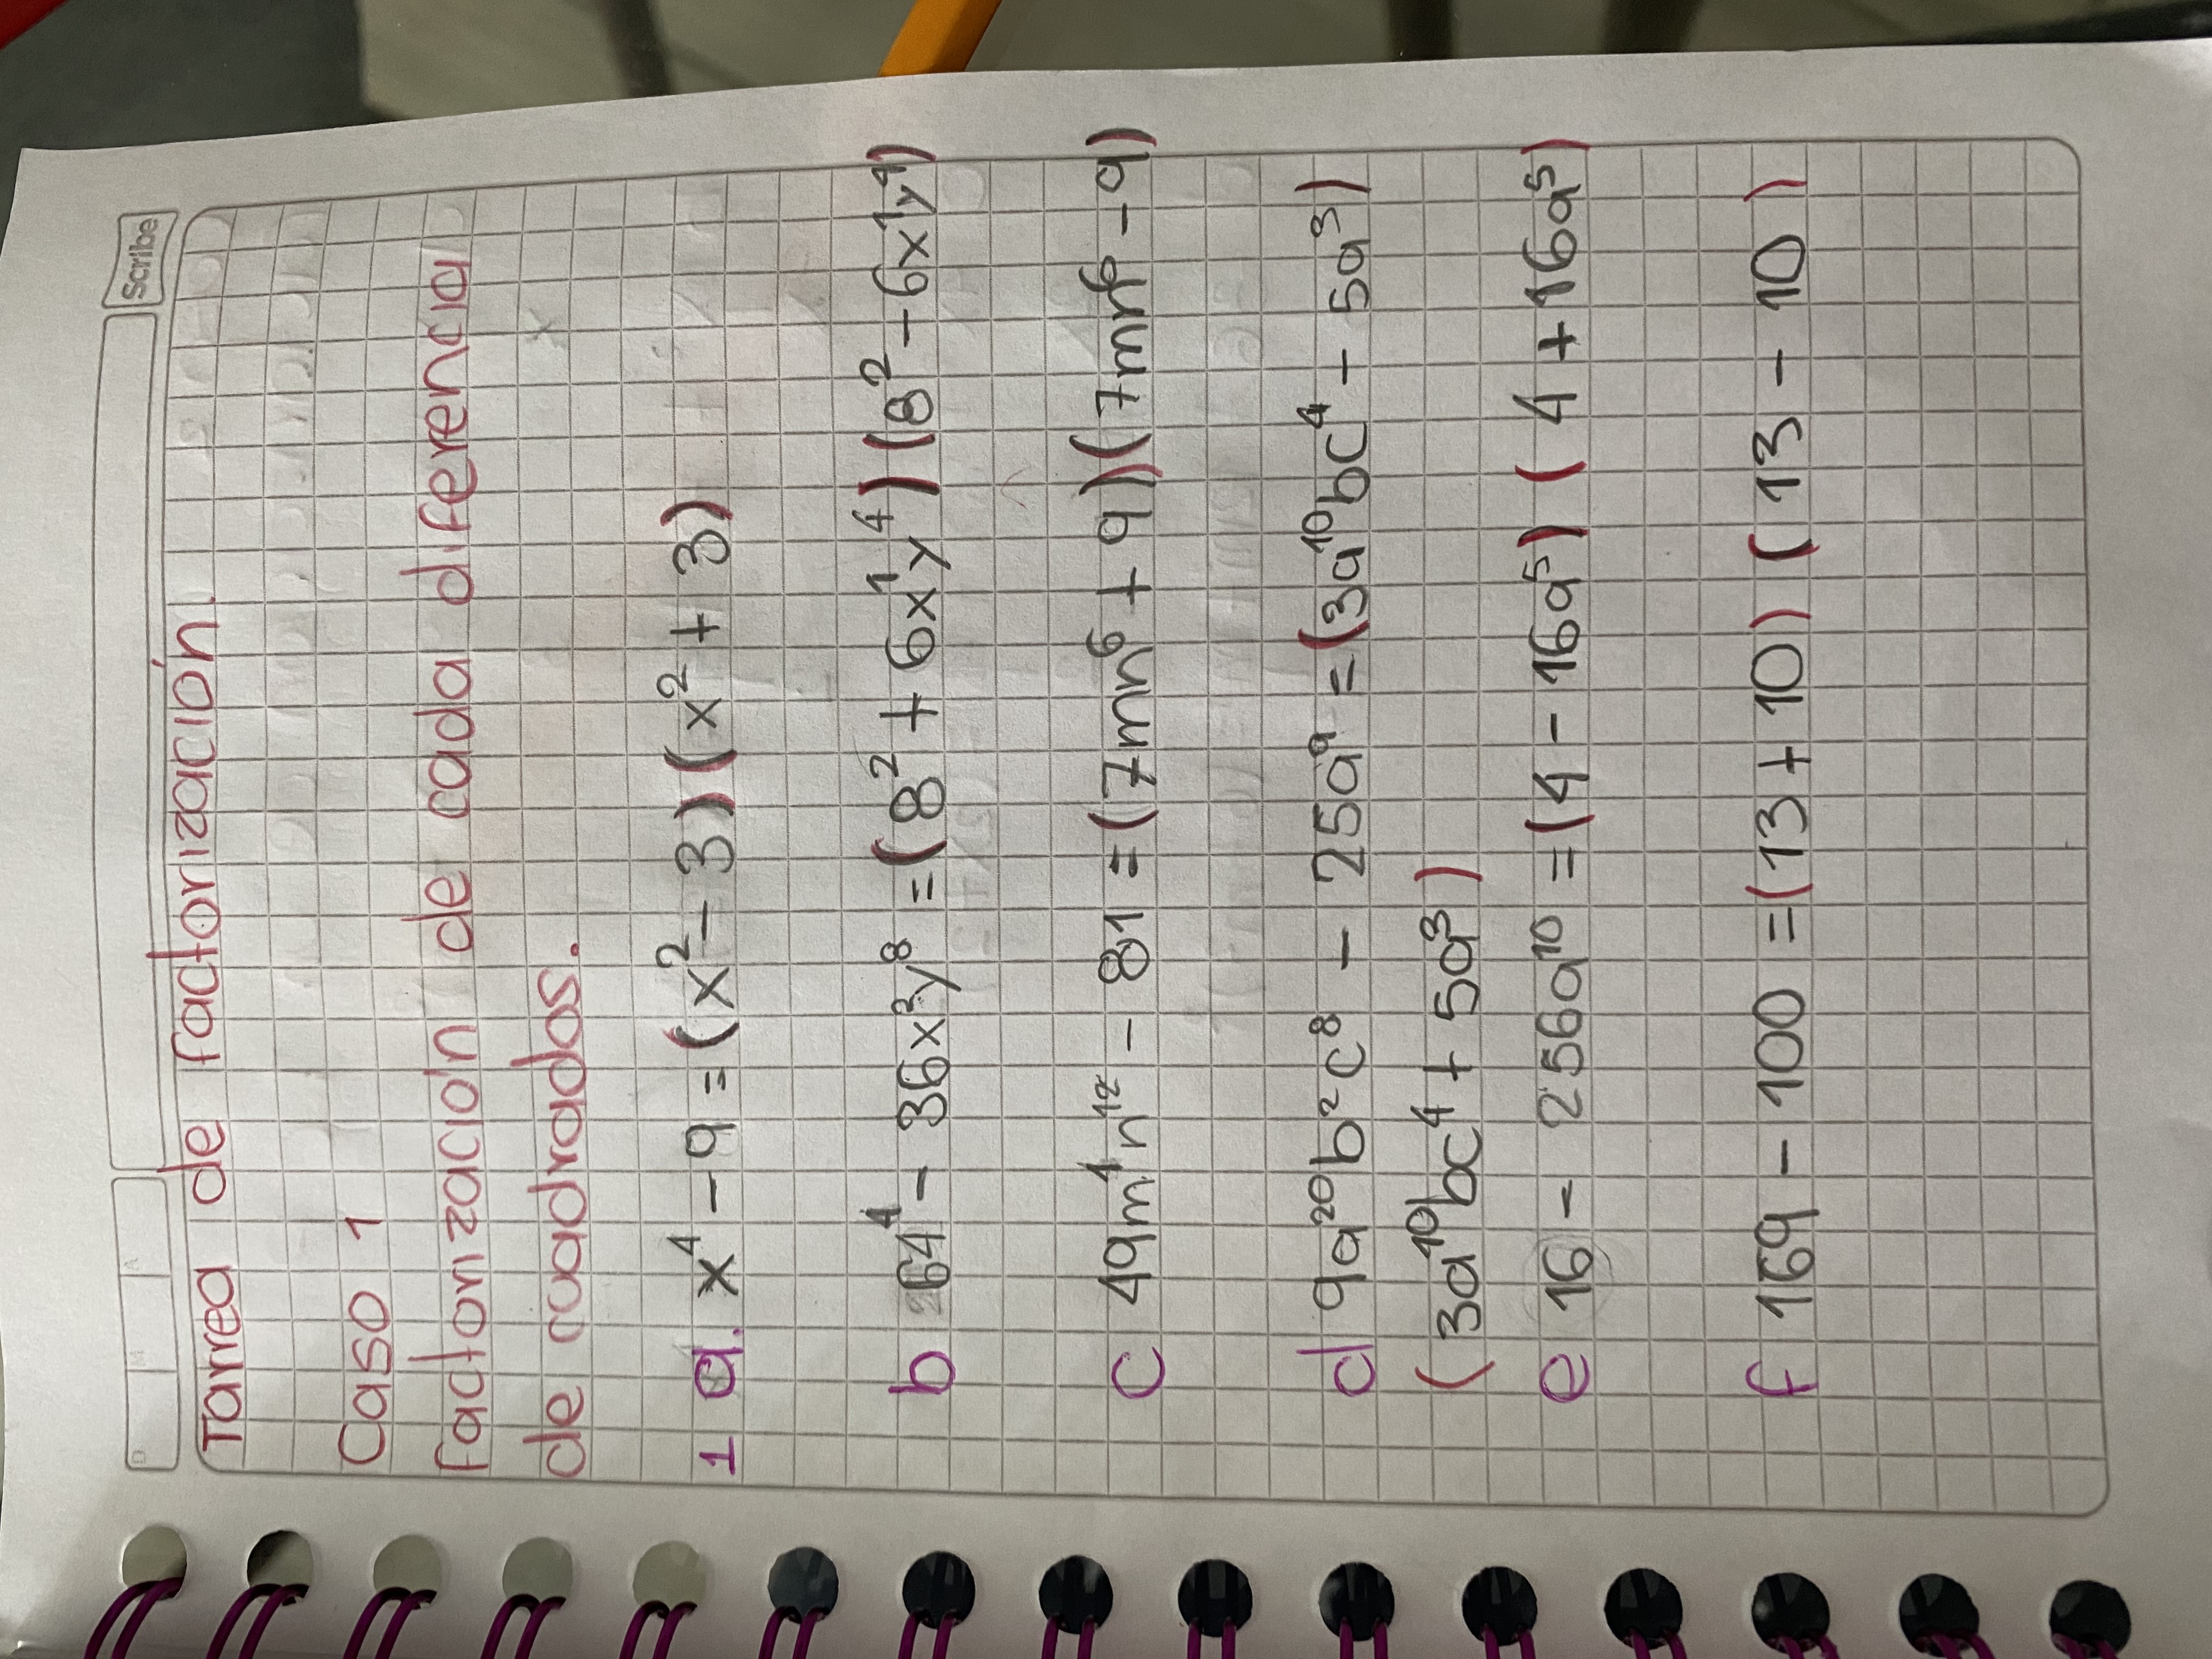 D M A
Scribe
Tarrea de factorización.
Caso 1
factorización de cada diferencia
de cuadrados.
1 a. x⁴ - 9 = (x² - 3) (x² + 3)
b 64⁴ - 36x²y⁸ = (8² + 6x¹y⁴) (8² - 6x¹y⁴)
c 49m⁴n¹² - 81 = (7mn⁶ + 9) (7mn⁶ - 9)
d 9a²⁰b²c⁸ - 25a⁹ = (3a¹⁰bc⁴ - 5a³)
(3a¹⁰bc⁴ + 5a³)
e 16 - 256a¹⁰ = (4 - 16a⁵) (4 + 16a⁵)
f 169 - 100 = (13 + 10) (13 - 10)